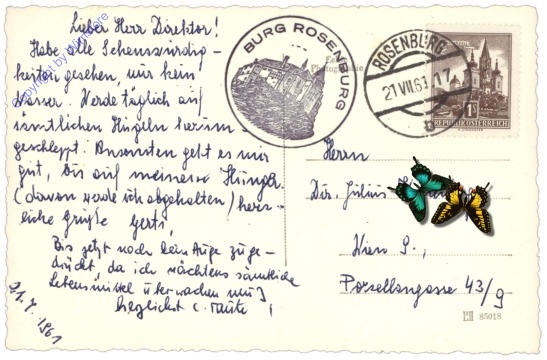 Lieber Herr Direktor!
Habe alle Sehenswürdig-
keiten gesehen, nur kein
Wasser. Werde täglich auf
sämtlichen Hügeln herum-
geschleppt. Ansonsten geht es mir
gut, bis auf meinen Hunger.
(davon werde ich abgehalten) herz-
liche Grüße Gerti,
Bis jetzt noch kein Auge zuge-
drückt, da ich nächtens sämtliche
Lebensmittel überwachen muß
herzlichst
21.7.1961
Copyright by
BURG ROSENBURG
ROSENBURG
21.VII.61-17
b
1S
REPUBLIK ÖSTERREICH
Herrn
Dir. Julius
Wien 9.,
Porzellangasse 43/9
85018